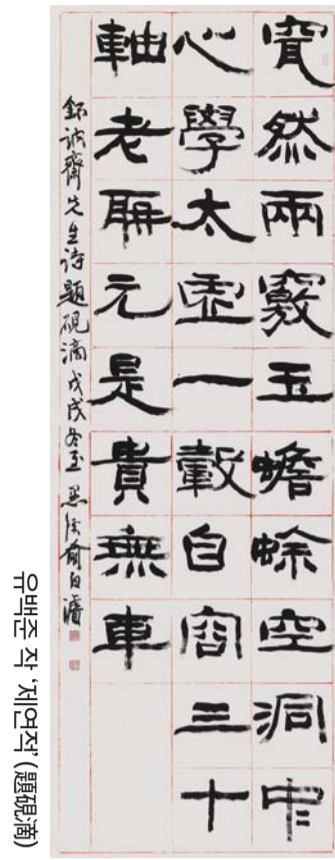 窅然兩竅玉蟾蜍空洞中
心學太虛一轂自容三十
軸老聃元是貴無車
錄訥齋先生詩題硯滴 戊戌冬至 俞白濬
유백준 작 '제연적' (題硯滴)